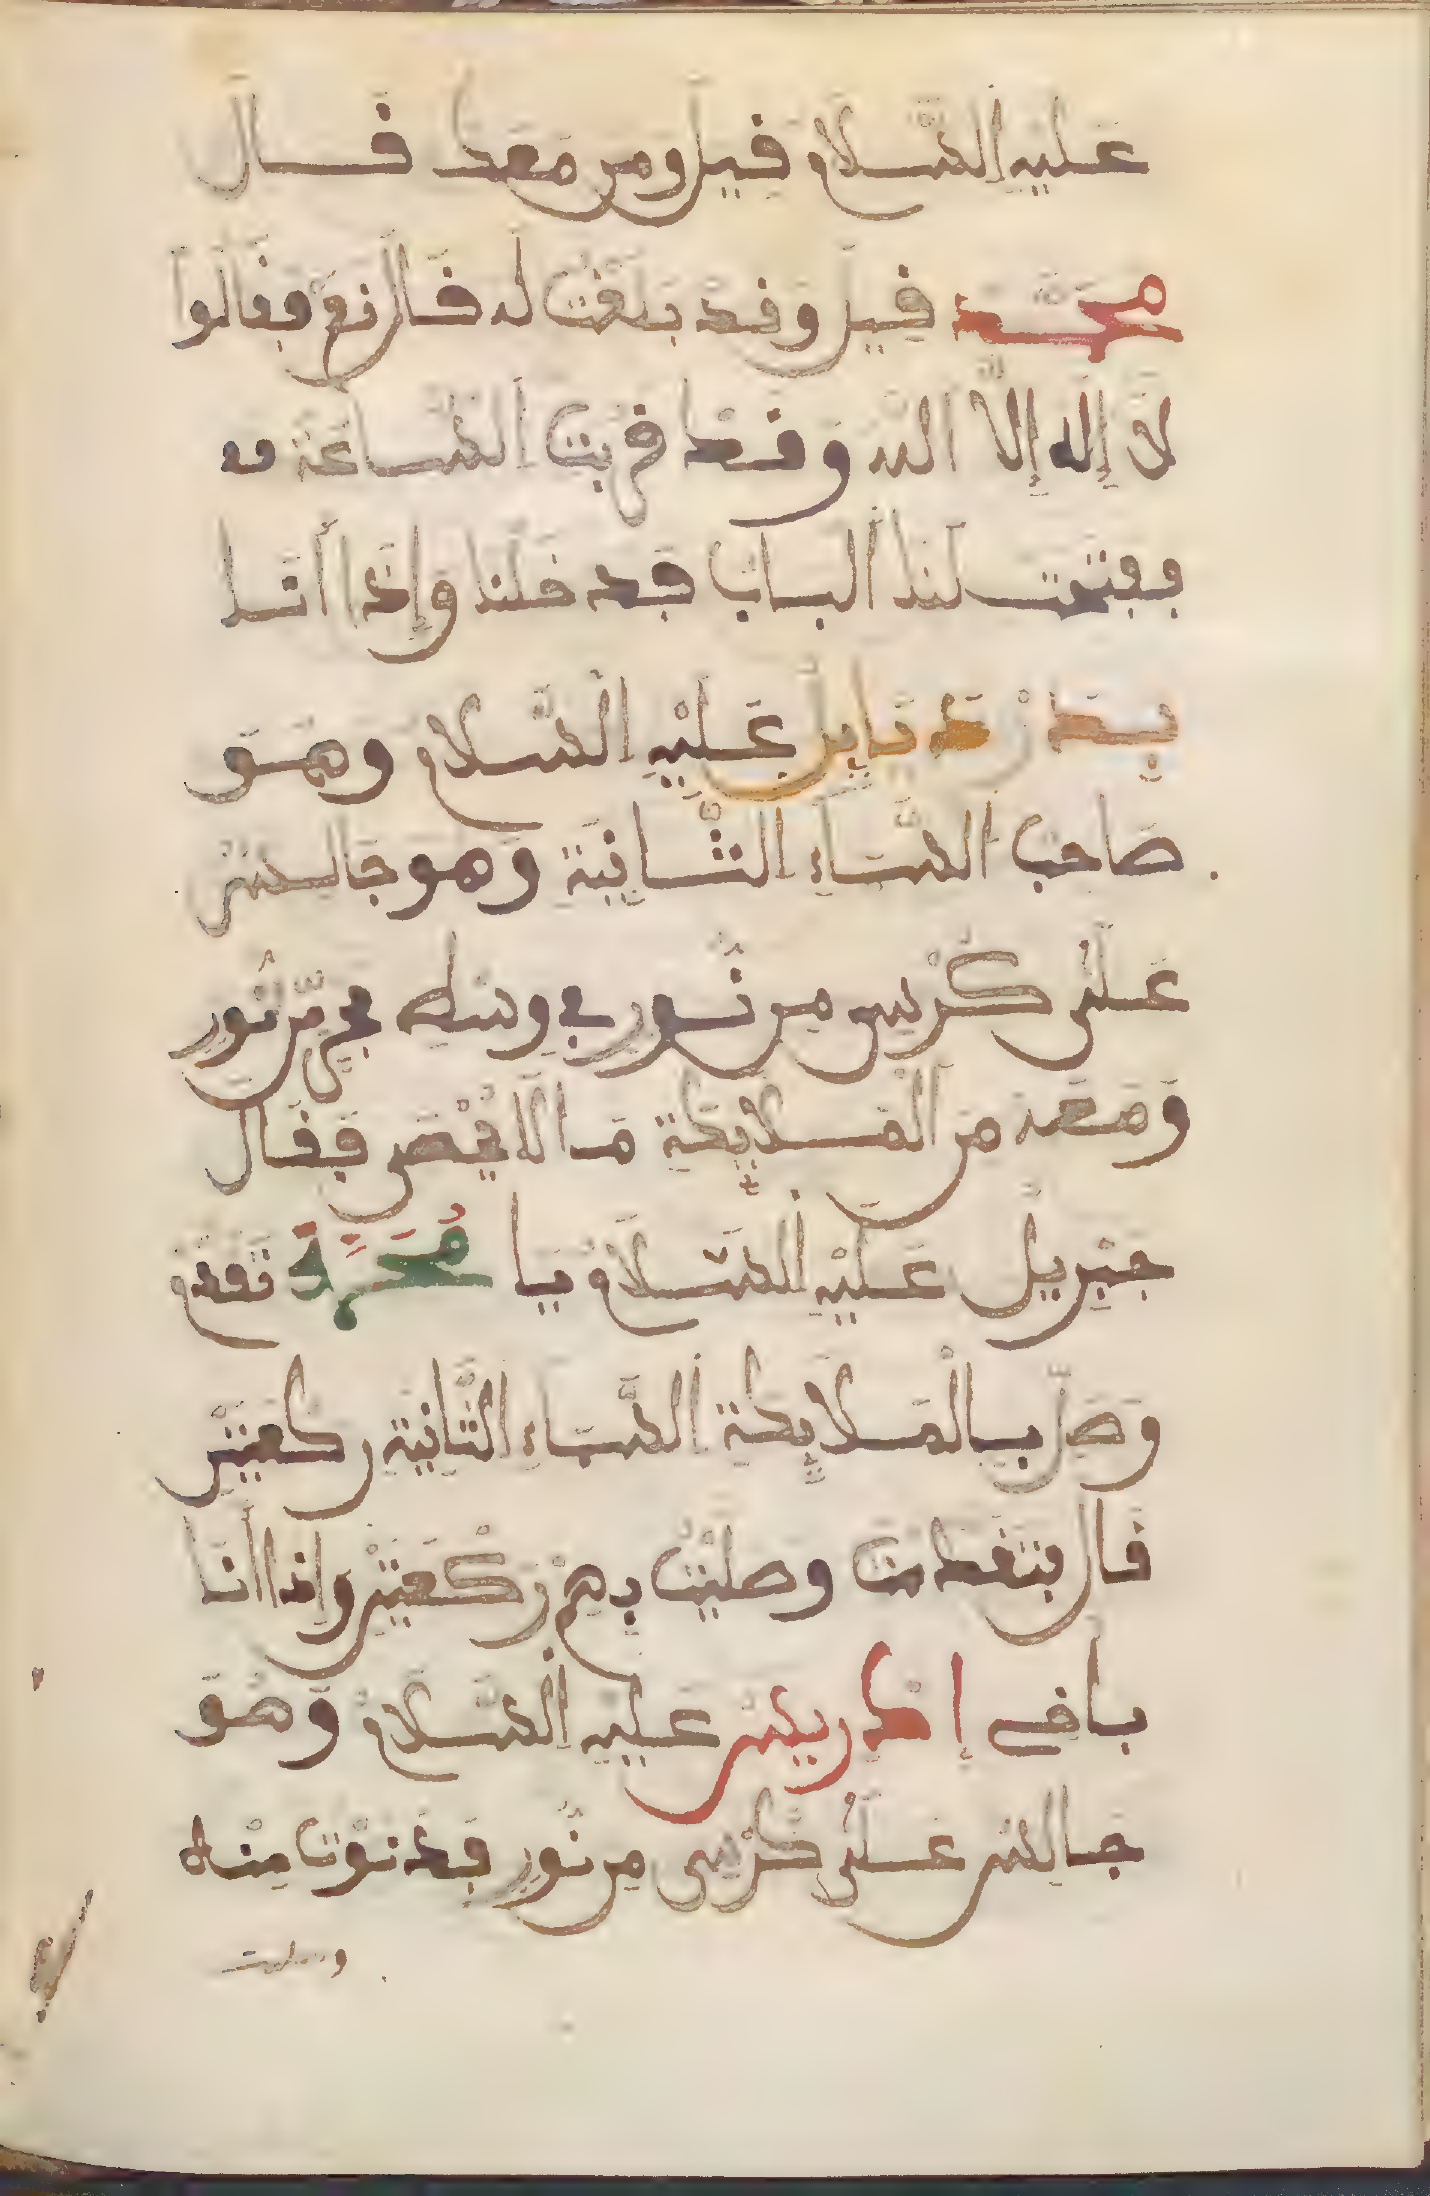 عليه السلام قيل ومن معك قال
محمد قيل وقد بعثت له قال نعم فقالوا
لا إله إلا الله وقد قربت الساعة
ففتحت لنا الباب فدخلنا وإذا أنا
عليه السلام وهو
صاحب السماء الثانية وهو جالس
على كرسي من نور في وسطه من نور
ومعه من الملايكة ما لا يحصى فقال
جبريل عليه السلام يا محمد تقدم
وصل بالملايكة السماء الثانية ركعتين
قال فتقدمت وصليت بهم ركعتين وإذا أنا
بأخي إدريس عليه السلام وهو
جالس على كرسي من نور فدنوت منه
وسلمت